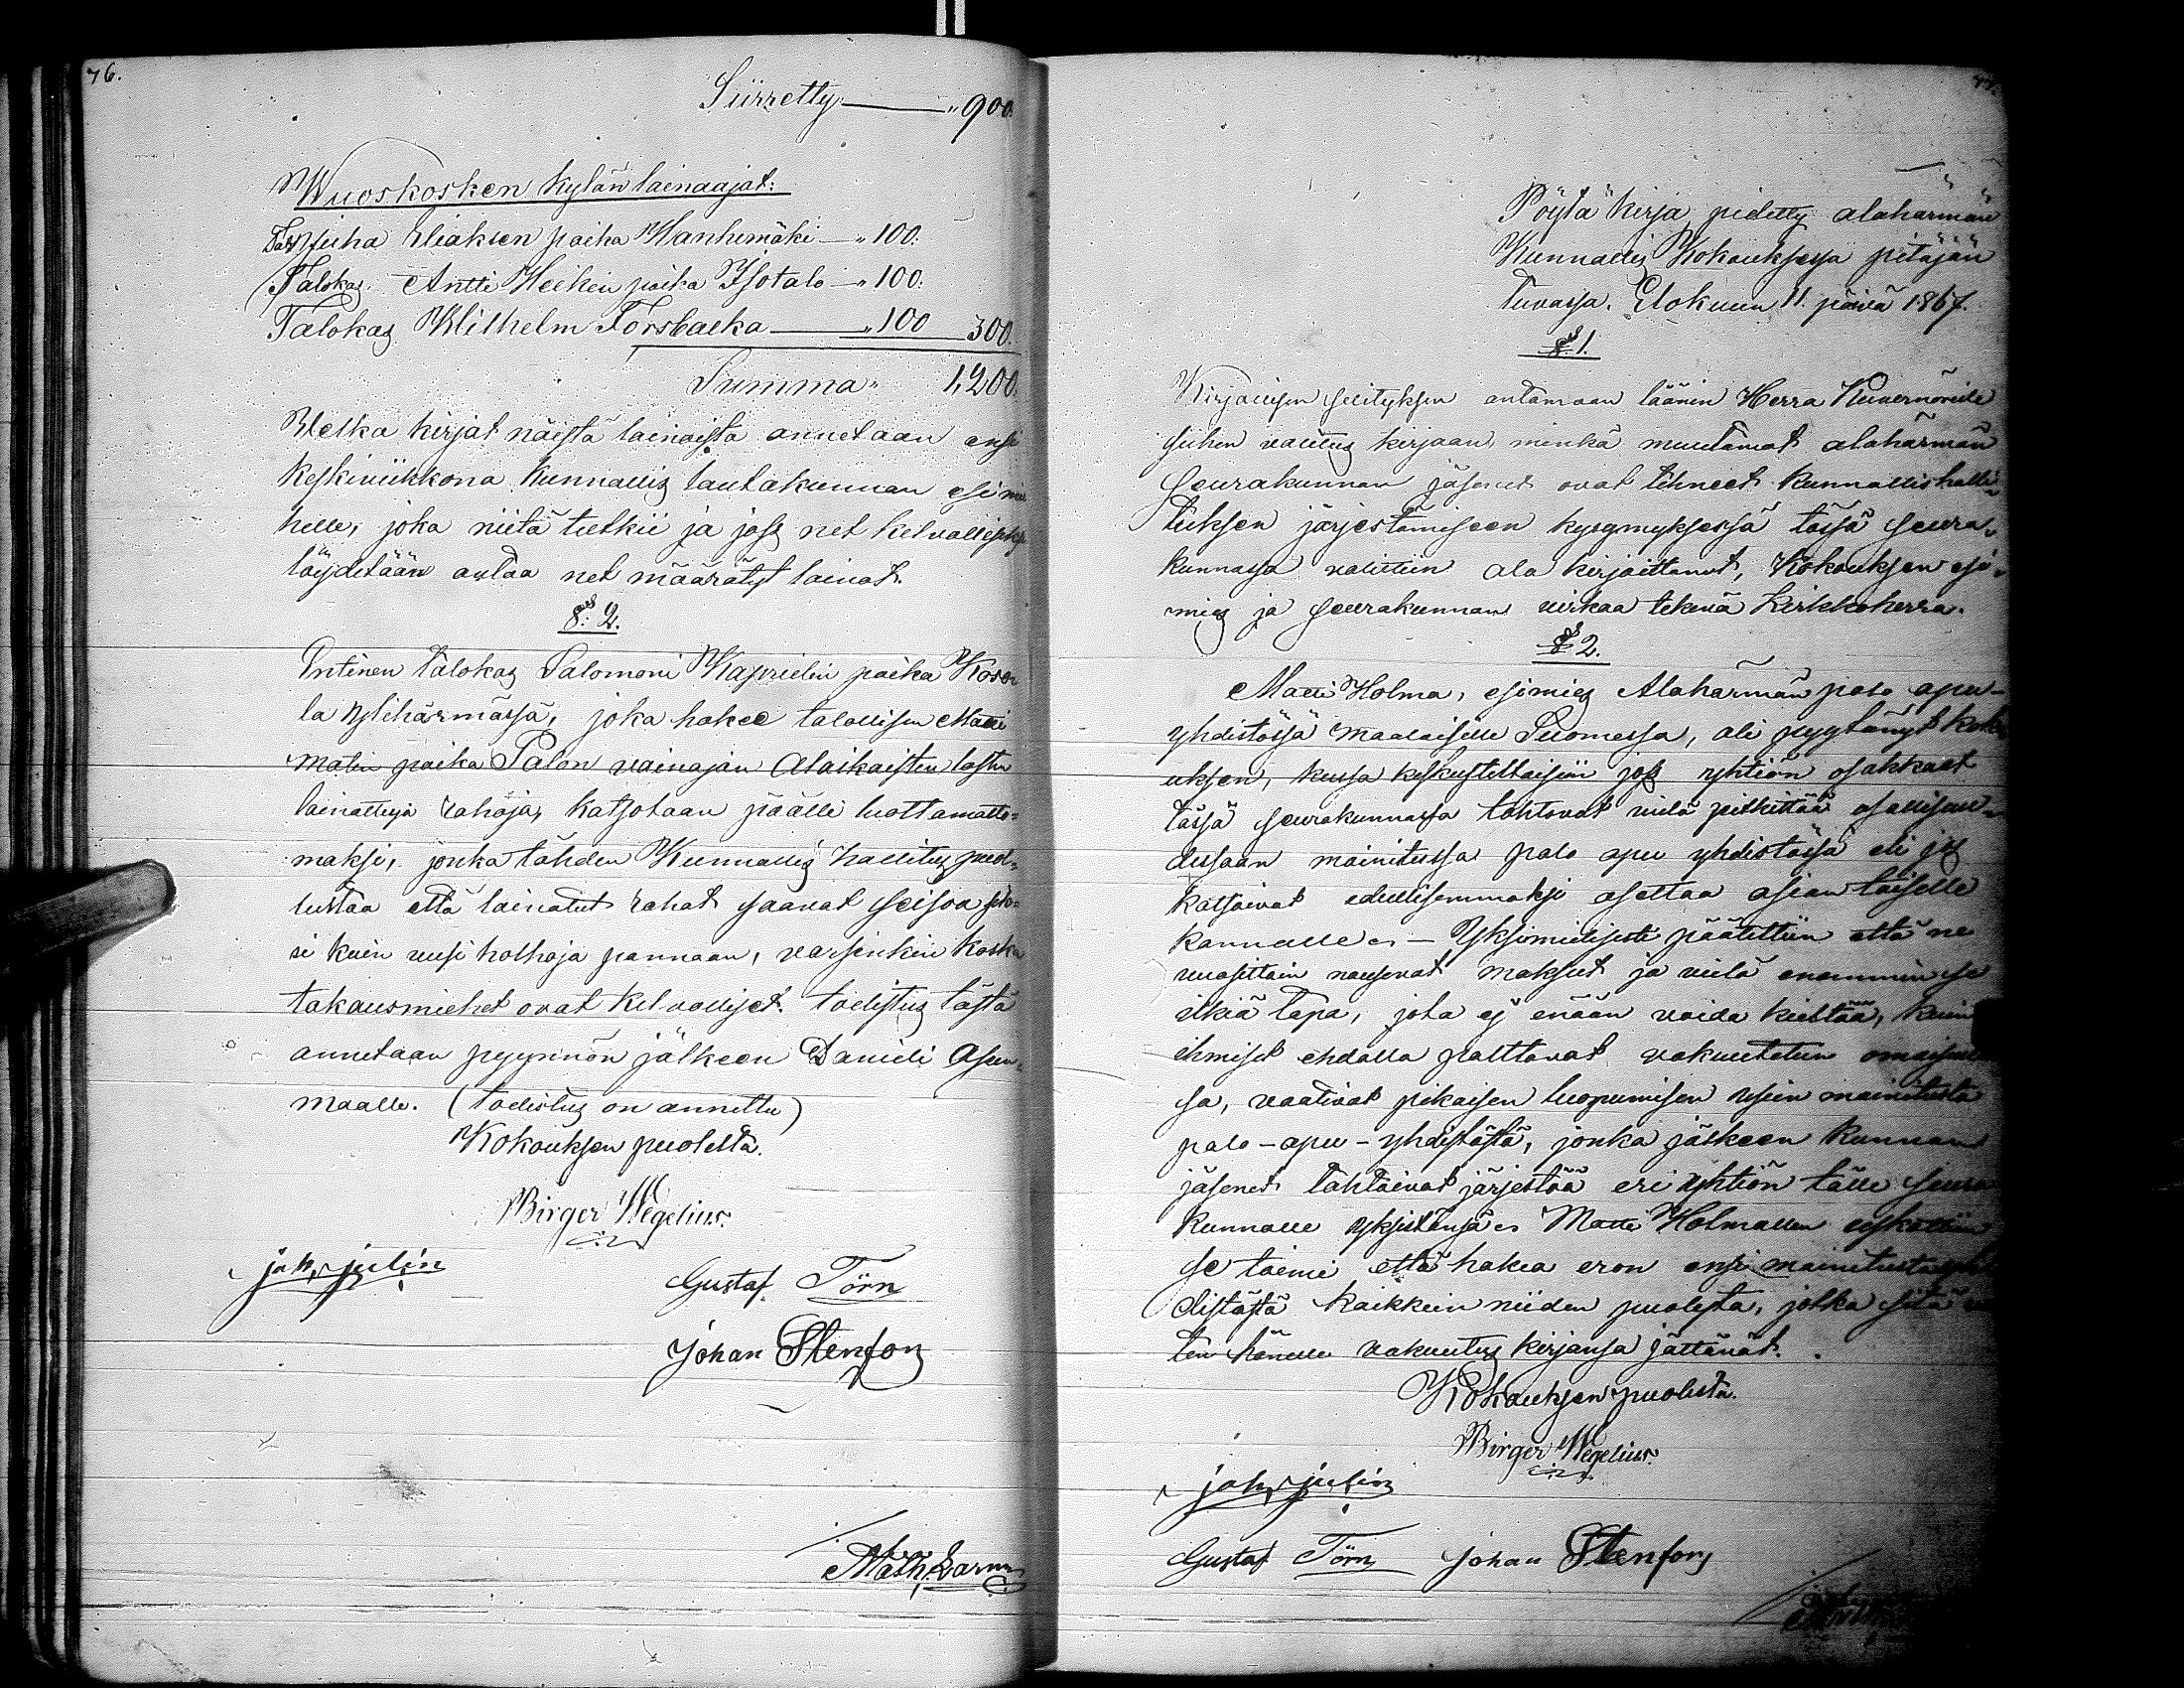 76.
Siirretty — " 900.
Wuoskosken kylän lainaajat:
Juha Eliaksen poika Wanhimäki — " 100:
Talokas. Antti Heikin poika Isotalo — " 100:
Talokas Wilhelm Forsbacka — " 100 300.
Summa " 1,200.
Welka kirjat näistä lainoista annetaan ensi
keskiviikkona Kunnallis lautakunnan esimie
helle, joka niitä tutkii ja jos net kelvollisiksi
löydetään antaa net määrätyt lainat.
§: 2.
Entinen talokas Salomoni Kaprielin poika Koso
la Ylihärmässä, joka hakee talollisen Matti
Matin poika Palon vainajan alaikaisten lasten
lainattuja rahoja, katsotaan päälle luottamatto=
maksi, jonka tähden Kunnallis hallitus puol=
lustaa että lainatut rahat saavat seisoa sik=
si kuin uusi holhoja pannaan, varsinkin koska
takausmiehet ovat kelvolliset. todistus tästä
annetaan pyynnön jälkeen Danieli Asun=
maalle. (todistus on annettu)
Kokouksen puolelta.
Birger Wegelius.
joh, julin
Gustaf Törn
Johan Stenfors
Math.
77.
Pöytä kirja pidetty alahärmän
Kunnallis Kokouksessa pitäjän
tuvassa. Elokuun 11. päivä 1867.
§ 1.
Kirjallisen selityksen antamaan läänin Herra Kuvernörille
siihen valitus kirjaan, minkä muutamat alahärmän
seurakunnan jäsenet ovat tehneet kunnallishalli=
tuksen järjestämiseen kysymyksessä tässä seura=
kunnassa valittiin ala kirjoittanut, Kokouksen esi=
mies ja seurakunnan virkaa tekevä kirkkoherra.
§ 2.
Matti Holma, esimies Alahärmän palo apu-
yhdistössä maalaisille Suomessa, oli pyytänyt koko
uksen, kussa keskusteltaisiin jos yhtiön osakkaat
tässä seurakunnassa tahtovat vielä pitkittää osallisuu=
dessaan mainitussa palo apu yhdistössä eli jos
katsoivat edullisemmaksi asettaa asian toiselle
kannalle – Yksimielisesti päätettiin että ne
vuosittain nousevat maksut ja vielä enemmin se
ilkiä tapa, jota ej enään voida kieltää, kuin
ihmiset ehdolla polttavat vakuutetun omaisuu
sa, vaativat pikaisen luopumisen usein mainitusta
palo-apu-yhdistöstä, jonka jälkeen kunnan
jäsenet tahtoivat järjestää eri yhtiön tälle seura
kunnalle yksistänsä Matti Holmallen uskottiin
se toimi että hakea eron ensi mainitusta yh
distöstä kaikkein niiden puolesta, jotka sitä va
ten hänelle vakuutus kirjansa jättävät.
Kokouksen puolesta.
Birger Wegelius.
joh, julin
Gustaf Törn Johan Stenfors